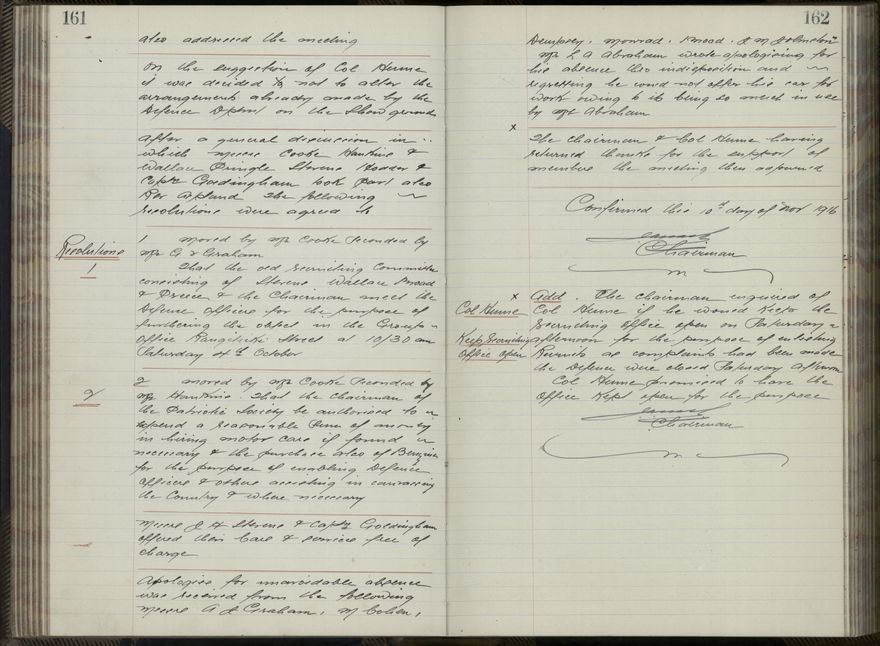 161
also addressed the meeting
On the suggestion of Col Hume
it was decided to not to alter the
arrangements already made by the
Defence Dptmt on the Show grounds
After a general discussion in
which Messrs Cooke Hankins &
Wallace Pringle Stevens Hodder &
Captn Goldingham took part also
the following
resolutions were agreed to
Resolutions
1
1 moved by Mr Cooke seconded by
Mr G Graham
That the old recruiting Committee
consisting of Stevens Wallace
& Preece & the Chairman meet the
Defence Officers for the purpose of
furthering the object in the Groups
Office Rangitikei Street at 10/30 am
Saturday 4th October
2
2 moved by Mr Cooke seconded by
Mr Hankins. That the Chairman of
the Patriotic Society be authorised to
spend a reasonable sum of money
in hiring motor cars if found
necessary & the purchase also of Benzine
for the purpose of enabling Defence
Officers & others assisting in canvassing
the Country & where necessary
Messrs J H Stevens & Captn Goldingham
offered their cars & service free of
charge
Apologies for unavoidable absence
was received from the following
Messrs A J Graham, M Cohen,
162
Dempsey, Monrad, J M Johnston
Mr L A Abraham wrote apologising for
his absence thro indisposition and
regretting he could not offer his car for
work owing to its being so much in use
by Mr Abraham
x
The Chairman & Col Hume having
returned thanks for the support of
members the meeting then adjourned
Confirmed this 10th day of Nov 1916
Chairman
x Add. The chairman enquired of
Col Hume
Col Hume if he would keep the
recruiting office open on Saturday
Keep Recruiting
afternoon for the purpose of enlisting
Office open
Recruits as complaints had been made
the Defence were closed Saturday afternoon
Col Hume promised to have the
office kept open for the purpose
Chairman